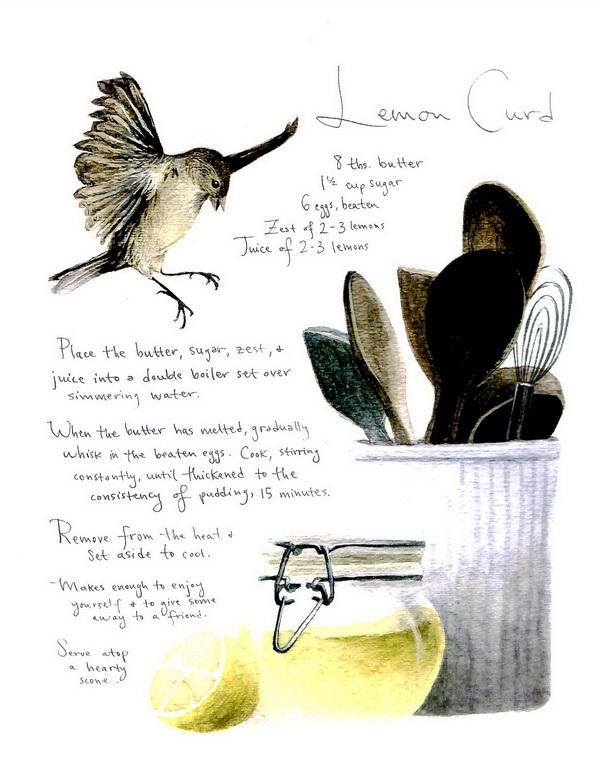 Lemon Curd
8 tbs. butter
1½ cup sugar
6 eggs, beaten
Zest of 2-3 lemons
Juice of 2-3 lemons
Place the butter, sugar, zest, &
juice into a double boiler set over
simmering water.
When the butter has melted, gradually
whisk in the beaten eggs. Cook, stirring
constantly, until thickened to the
consistency of pudding, 15 minutes.
Remove from the heat &
set aside to cool.
Makes enough to enjoy
yourself & to give some
away to a friend.
Serve atop
a hearty
scone.